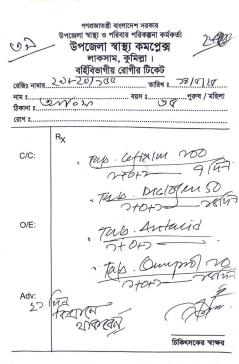 গণপ্রজাতন্ত্রী বাংলাদেশ সরকার
উপজেলা স্বাস্থ্য ও পরিবার পরিকল্পনা কর্মকর্তা
উপজেলা স্বাস্থ্য কমপ্লেক্স
লাকসাম, কুমিল্লা।
বর্হিবিভাগীয় রোগীর টিকেট
রেজিঃ নাম্বার
তারিখ ঃ
নাম ঃ
বয়স ঃ ৬৫ পুরুষ / মহিলা
ঠিকানা ঃ
রোগ ঃ
Rx
C/C:
Tab. Cefixim 200
১+০+১ ৭ দিন
Tab. Diclofen 50
১+০+১
O/E:
Tab. Antacid
১+০+১
Tab. 20
১+০+১
Adv:
১০ দিন
বিশ্রামে
থাকবেন
চিকিৎসকের স্বাক্ষর